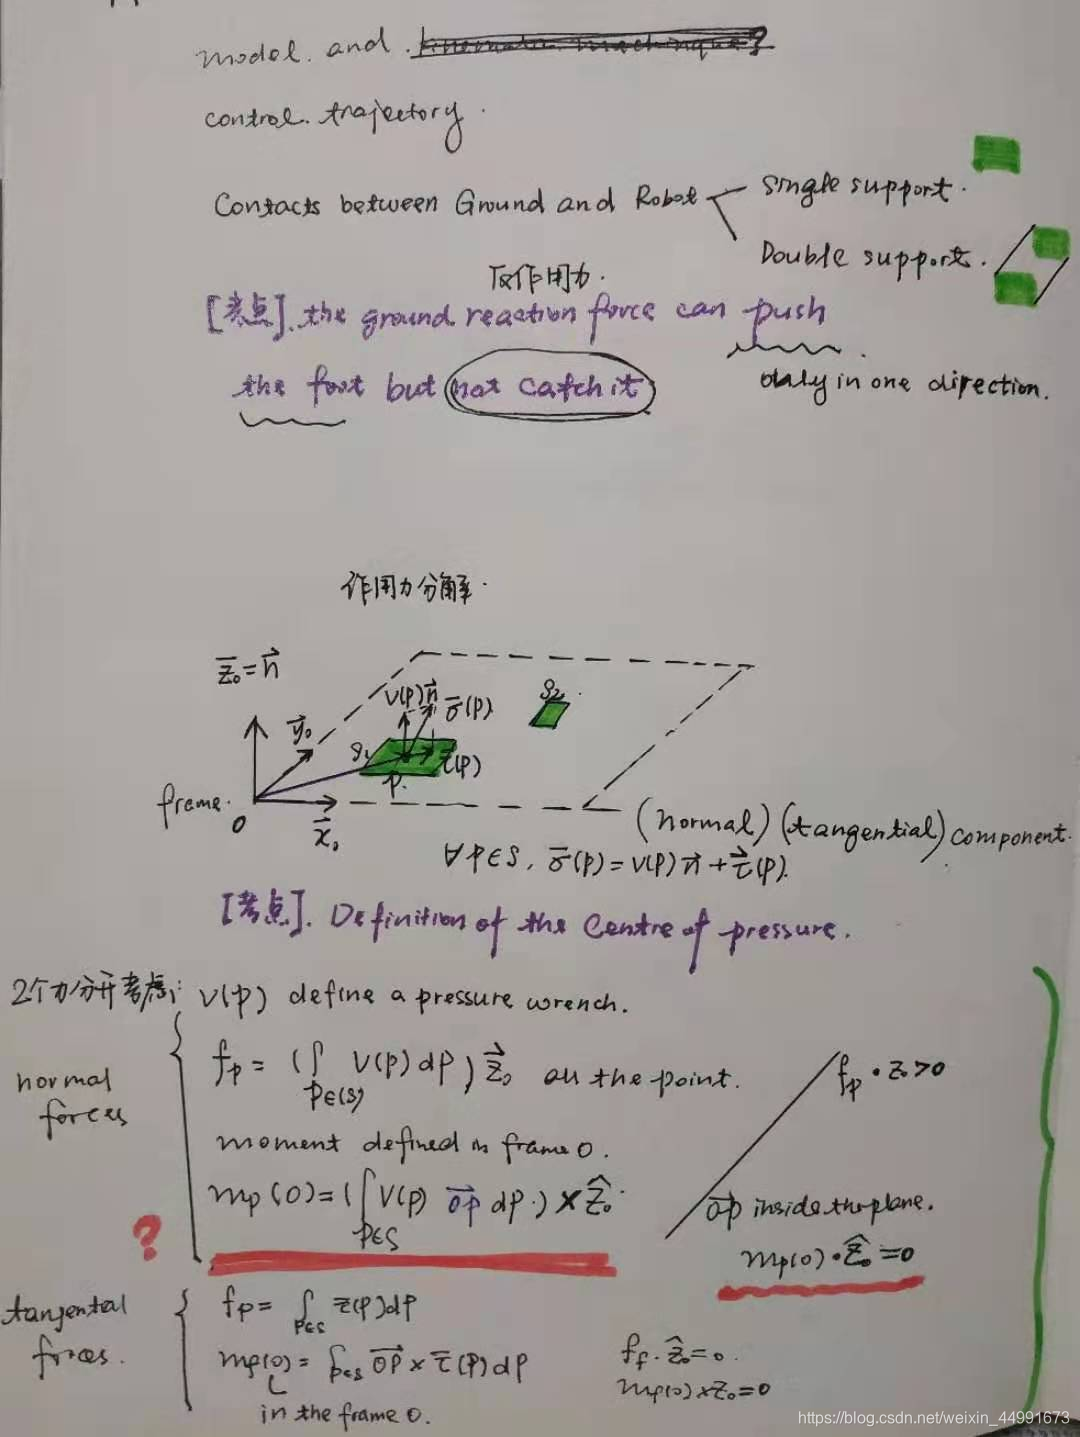 model. and
control. trajectory.
Contacts between Ground and Robot
single support.
Double support.
反作用力.
[考点]. the ground reaction force can push
the foot but not catch it
only in one direction.
作用力分解.
z₀ = n
y₀
V(p)n
σ(p)
S₂
S₁
τ(p)
p.
frame.
O
x₀
(normal) (tangential) component.
∀ p ∈ S, σ(p) = V(p) n + τ(p).
[考点]. Definition of the Centre of pressure.
2个力分开考虑: V(p) define a pressure wrench.
normal
forces
fp = (∫ V(p) dp) z₀ all the point.
p∈(S)
fp · z₀ > 0
moment defined in frame O.
mp(O) = (∫ V(p) op dp.) × z₀.
p∈S
op inside the plane.
mp(O) · z₀ = 0
?
tangental
forces.
fp = ∫ τ(p) dp
p∈S
mp(O) = ∫p∈S OP × τ(p) dp
in the frame O.
ff · z₀ = 0.
mp(O) × z₀ = 0
https://blog.csdn.net/weixin_44991673